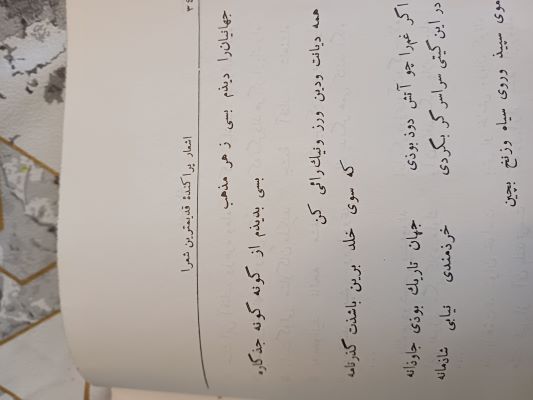 اشعار پراکندهٔ قدیمترین شعرا
جهانیان را دیذم بسی ز هر مذهب
بسی بدیذم از گونه گونه جذکاره
همه دیانت ودین ورز ونیك رائی کن
که سوی خلد برین باشذت گذرنامه
اگر غم را چو آتش دوذ بوذی
جهان تاریك بوذی جاودانه
در این گیتی سراسر گر بگردی
خردمندی نیابی شاذمانه
موی سپیذ وروی سیاه وزنخ بچین